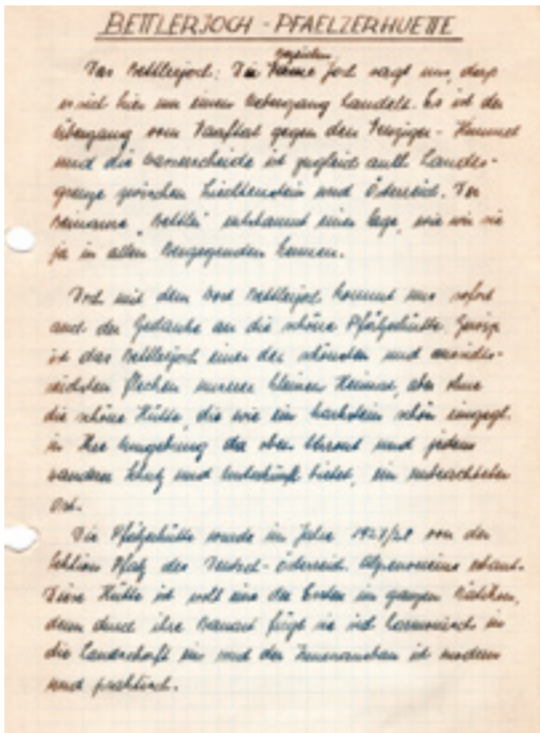 BETTLERJOCH - PFAELZERHUETTE
bezeichn.
Das Bettlerjoch: Die Name Joch sagt uns, dass
es sich hier um einen Uebergang handelt. Es ist der
Übergang vom gegen den - Himmel
und die Wasserscheide ist zugleich auch Landes-
grenze zwischen Liechtenstein und Österreich. Der
Beiname "Bettler" entstammt einer Sage, wie wir sie
ja in allen Berggegenden kennen.
Doch mit dem Wort Bettlerjoch kommt uns sofort
auch der Gedanke an die schöne Pfälzerhütte. Gewiss
ist das Bettlerjoch einer der schönsten und
Flecken unserer kleinen Heimat, aber ohne
die schöne Hütte, die wie ein schön eingefügt
in Ihre Umgebung da oben thront und jedem
Wanderer Schutz und Unterkunft bietet, ein
Ort.
Die Pfälzerhütte wurde im Jahre 1927/28 von der
Sektion Pfalz des Deutsch-Österreich. erbaut.
Diese Hütte ist wohl eine der Ersten im ganzen Rätikon,
denn durch ihre Bauart fügt sie sich harmonisch in
die Landschaft ein und der Innenausbau ist modern
und praktisch.